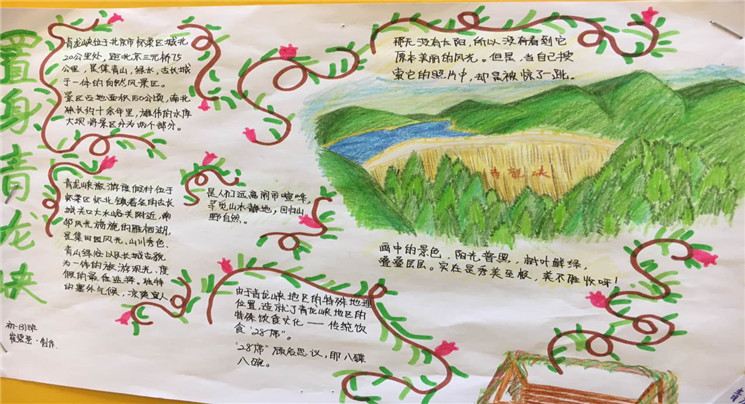 置身青龙峡
青龙峡位于北京市怀柔区城北
20公里处，距北京三元桥75
公里，是集青山，绿水，古长城
于一体的自然风景区。
景区占地面积150公顷，南北
峡长约十余里，雄伟的水库
大坝将景区分为两个部分。
青龙峡旅游度假村位于
怀柔区怀北镇著名的古长
城关口大水峪关附近，南
邻风光旖旎的雁栖湖，
是集田园风光，山川秀色，
青山绿水以长城古貌
为一体的旅游观光，度
假的最佳选择，独特
的塞外气候，凉爽宜人
是人们远离闹市喧哗，
寻觅山水静地，回归山
野自然。
由于青龙峡地区的特殊地理
位置，造就了青龙峡地区的
特殊饮食文化——传统饮
食"28席"。
"28席"顾名思议，即八碟
八碗。
那天没有太阳，所以没有看到它
原本美丽的风光。但是，当自己搜
索它的照片中，却是被惊了一跳。
青龍峡
画中的景色，阳光普照，树叶鲜绿，
叠叠层层。实在是秀美至极，美不胜收呀！
制作